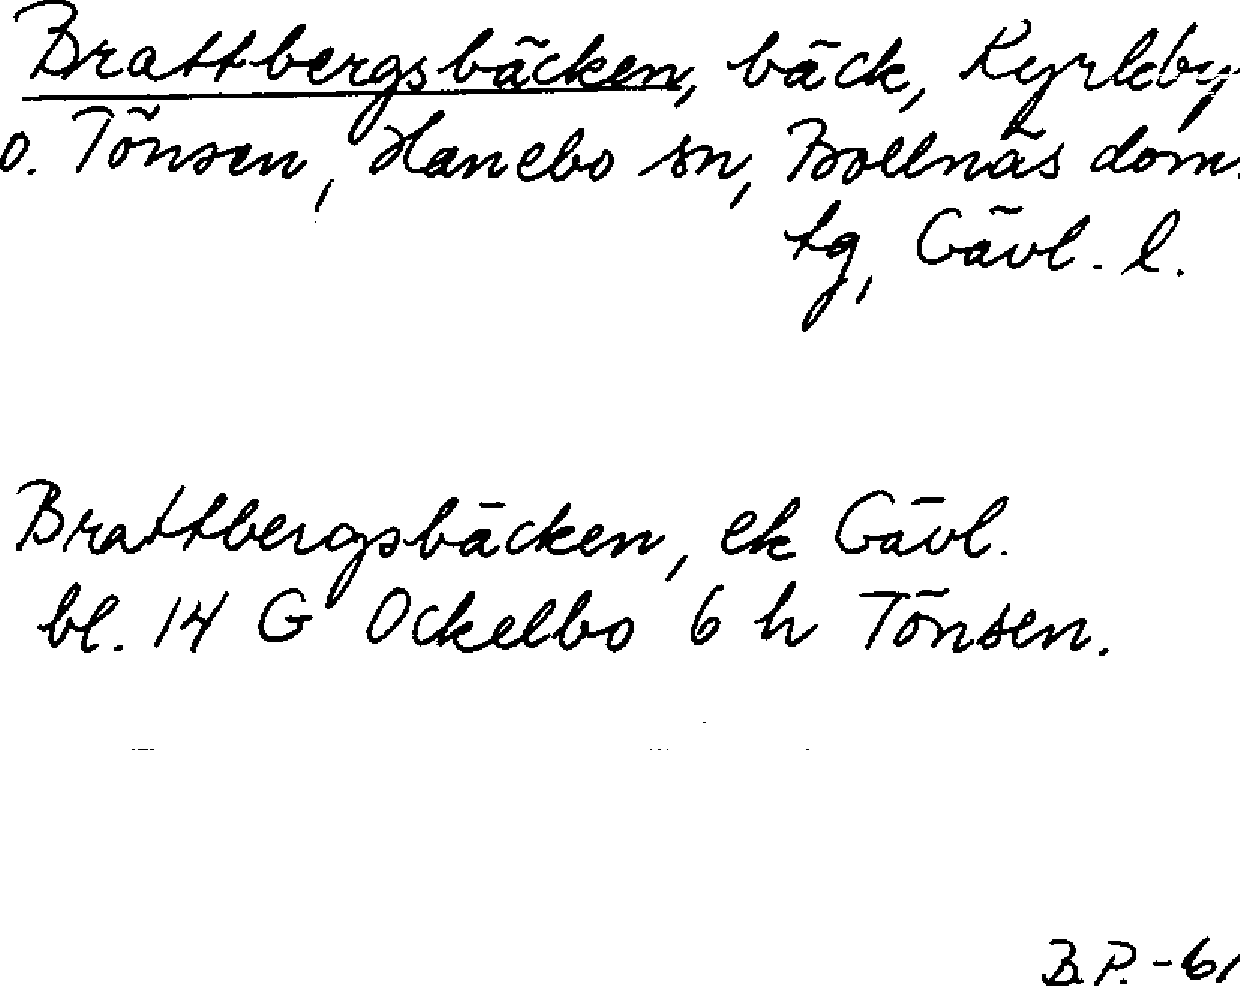 Brattbergsbäcken, bäck, Kyrkby
o. Tönsen, Hanebo sn, Bollnäs dom.
tg, Gävl. l.
Brattbergsbäcken, ek Gävl.
bl. 14 G Ockelbo 6 h Tönsen.
B.P.-61